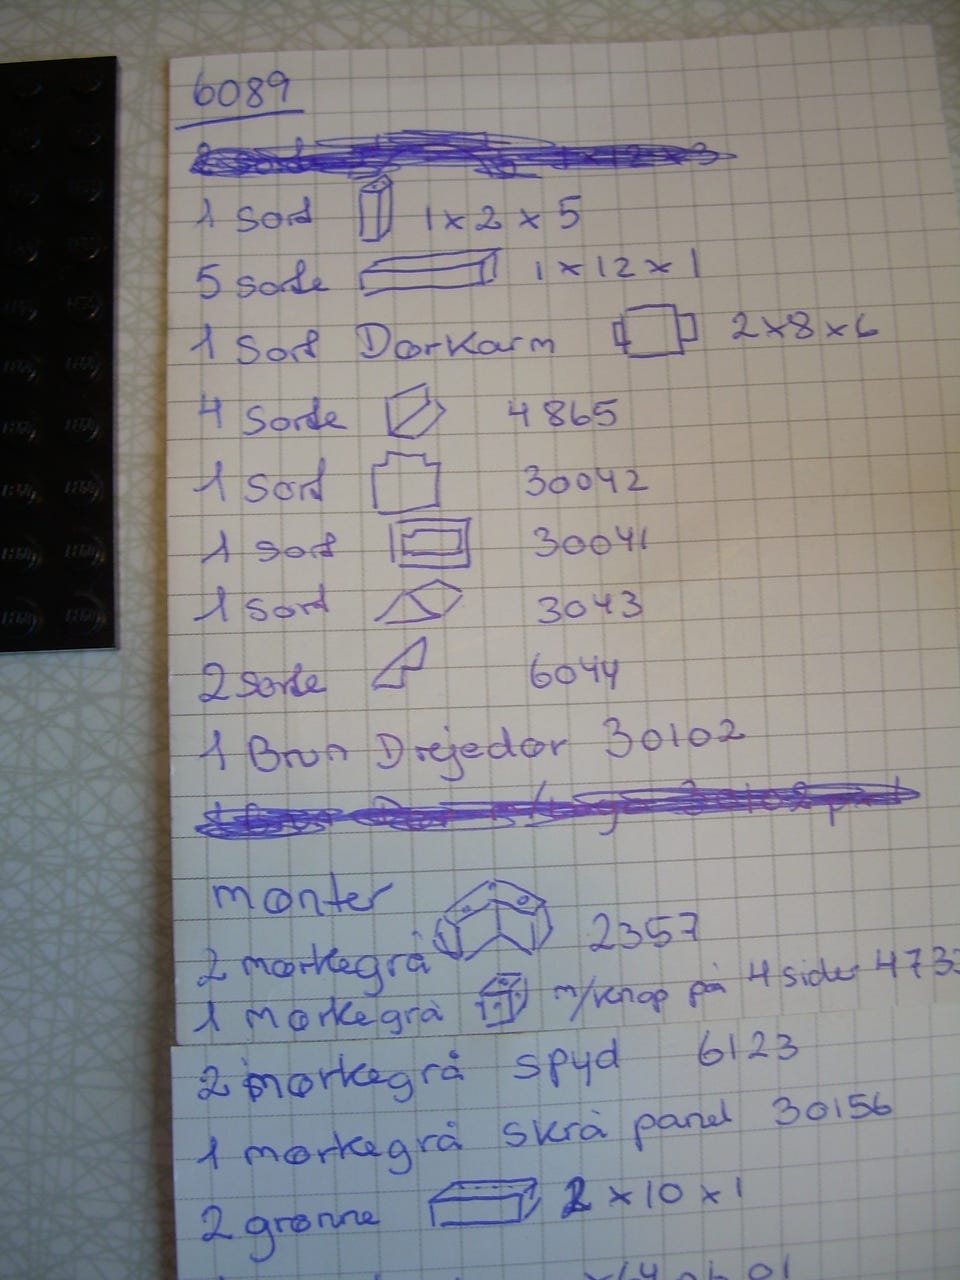 6089
1 Sort 1 x 2 x 5
5 sorte 1 x 12 x 1
1 Sort Dørkarm 2 x 8 x 6
4 Sorte 4865
1 Sort 30042
1 sort 30041
1 Sort 3043
2 Sorte 6044
1 Brun Drejedør 30102
mønter
2 mørkegrå 2357
1 mørkegrå m/knop på 4 sider 4733
2 mørkegrå spyd 6123
1 mørkegrå skrå panel 30156
2 grønne 2 x 10 x 1